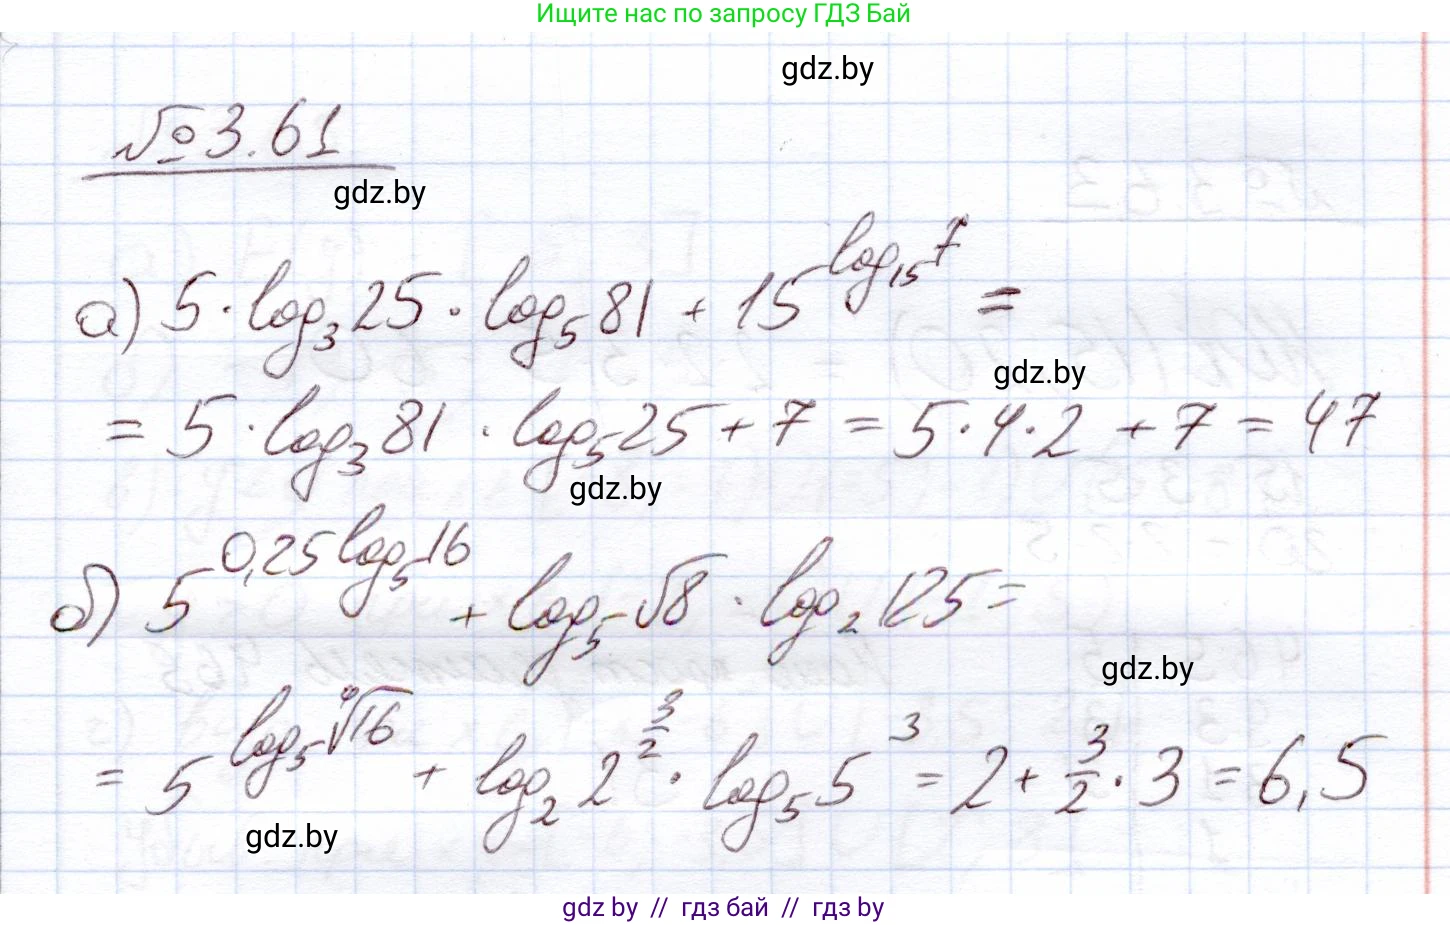 Ищите нас по запросу ГДЗ Бай
gdz.by
№ 3.61
gdz.by
а) 5 · log₃ 25 · log₅ 81 + 15^(log₁₅ 7) =
gdz.by
= 5 · log₃ 81 · log₅ 25 + 7 = 5 · 4 · 2 + 7 = 47
gdz.by
б) 5^(0,25 log₅ 16) + log₅ √8 · log₂ 125 =
gdz.by
= 5^(log₅ ⁴√16) + log₂ 2^(3/2) · log₅ 5³ = 2 + 3/2 · 3 = 6,5
gdz.by
gdz by // гдз бай // гдз by